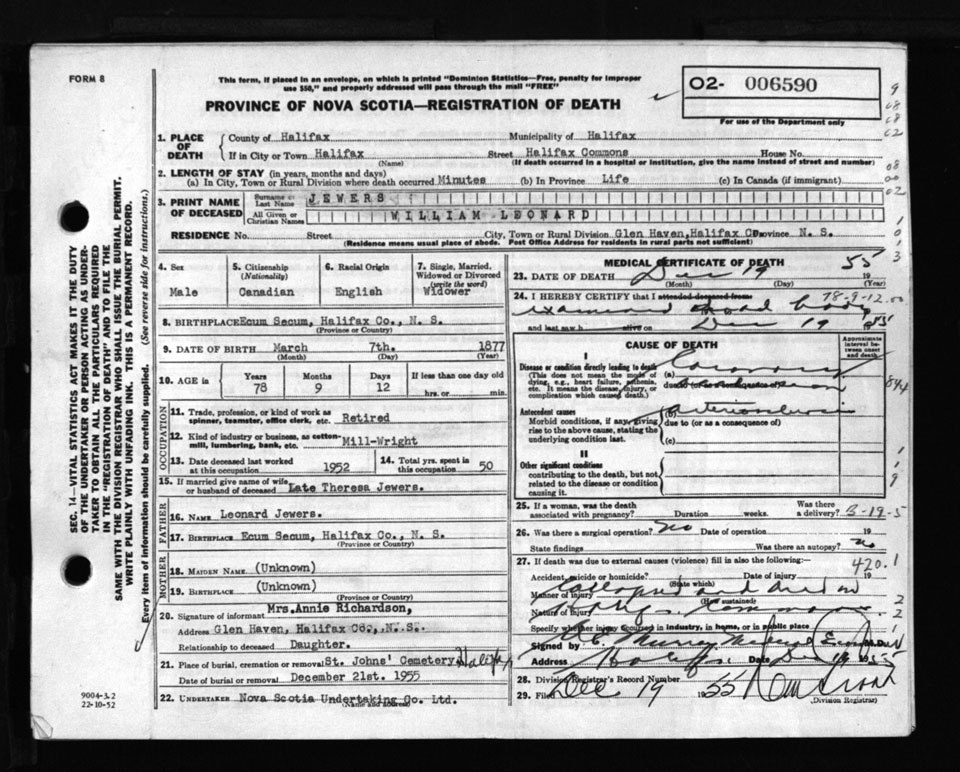 FORM 8
This form, if placed in an envelope, on which is printed "Dominion Statistics—Free, penalty for improper
use $50," and properly addressed will pass through the mail "FREE"
PROVINCE OF NOVA SCOTIA—REGISTRATION OF DEATH
02- 006590
For use of the Department only
1. PLACE OF DEATH County of Halifax Municipality of Halifax
If in City or Town Halifax Street Halifax Commons House No.
(Name) (If death occurred in a hospital or institution, give the name instead of street and number)
2. LENGTH OF STAY (in years, months and days)
(a) In City, Town or Rural Division where death occurred Minutes (b) In Province Life (c) In Canada (if immigrant)
3. PRINT NAME OF DECEASED Surname or Last Name JEWERS
All Given or Christian Names WILLIAM LEONARD
RESIDENCE No. Street City, Town or Rural Division Glen Haven, Halifax Co. Province N. S.
(Residence means usual place of abode. Post Office Address for residents in rural parts not sufficient)
4. Sex 5. Citizenship (Nationality) 6. Racial Origin 7. Single, Married, Widowed or Divorced (write the word)
Male Canadian English Widower
8. BIRTHPLACE Ecum Secum, Halifax Co., N. S.
(Province or Country)
9. DATE OF BIRTH March 7th. 1877
(Month) (Day) (Year)
10. AGE in Years Months Days If less than one day old
78 9 12 hrs. or min.
OCCUPATION
11. Trade, profession, or kind of work as spinner, teamster, office clerk, etc. Retired
12. Kind of industry or business, as cotton-mill, lumbering, bank, etc. Mill-Wright
13. Date deceased last worked at this occupation 1952 14. Total yrs. spent in this occupation 50
15. If married give name of wife or husband of deceased Late Theresa Jewers.
FATHER
16. NAME Leonard Jewers.
17. BIRTHPLACE Ecum Secum, Halifax Co., N. S.
(Province or Country)
MOTHER
18. MAIDEN NAME (Unknown)
19. BIRTHPLACE (Unknown)
(Province or Country)
20. Signature of informant Mrs. Annie Richardson,
Address Glen Haven, Halifax Co., N.S.
Relationship to deceased Daughter.
21. Place of burial, cremation or removal St. Johns' Cemetery Halifax
Date of burial or removal December 21st. 1955
22. UNDERTAKER Nova Scotia Undertaking Co. Ltd.
(Name and address)
MEDICAL CERTIFICATE OF DEATH
23. DATE OF DEATH Dec 19 1955
(Month) (Day) (Year)
78-9-12
24. I HEREBY CERTIFY that I attended deceased from
examined dead body
and last saw h alive on Dec 19 1955
CAUSE OF DEATH
Approximate interval between onset and death
I
Disease or condition directly leading to death
(This does not mean the mode of dying, e.g., heart failure, asthenia, etc. It means the disease, injury, or complication which caused death.)
(a) Coronary
due to (or as a consequence of)
Antecedent causes
Morbid conditions, if any, giving rise to the above cause, stating the underlying condition last.
(b)
due to (or as a consequence of)
(c)
II
Other significant conditions
contributing to the death, but not related to the disease or condition causing it.
25. If a woman, was the death associated with pregnancy? Duration weeks. Was there a delivery?
26. Was there a surgical operation? No Date of operation 19
State findings Was there an autopsy? no
27. If death was due to external causes (violence) fill in also the following:—
420.1
Accident, suicide or homicide? Date of injury 19
(State which)
Manner of injury Collapsed and died on
(How sustained)
Nature of injury Halifax Commons
Specify whether injury occurred in industry, in home, or in public place
Signed by Murray Medical M.D.
Address Halifax Date Dec 19 1955
28. Division Registrar's Record Number
29. Filed Dec 19 1955
(Division Registrar)
SEC. 14—VITAL STATISTICS ACT MAKES IT THE DUTY
OF THE UNDERTAKER OR PERSON ACTING AS UNDER-
TAKER TO OBTAIN ALL THE PARTICULARS REQUIRED
IN THE "REGISTRATION OF DEATH" AND TO FILE THE
SAME WITH THE DIVISION REGISTRAR WHO SHALL ISSUE THE BURIAL PERMIT.
WRITE PLAINLY WITH UNFADING INK. THIS IS A PERMANENT RECORD.
Every item of information should be carefully supplied. (See reverse side for instructions.)
9004-3.2
22-10-52